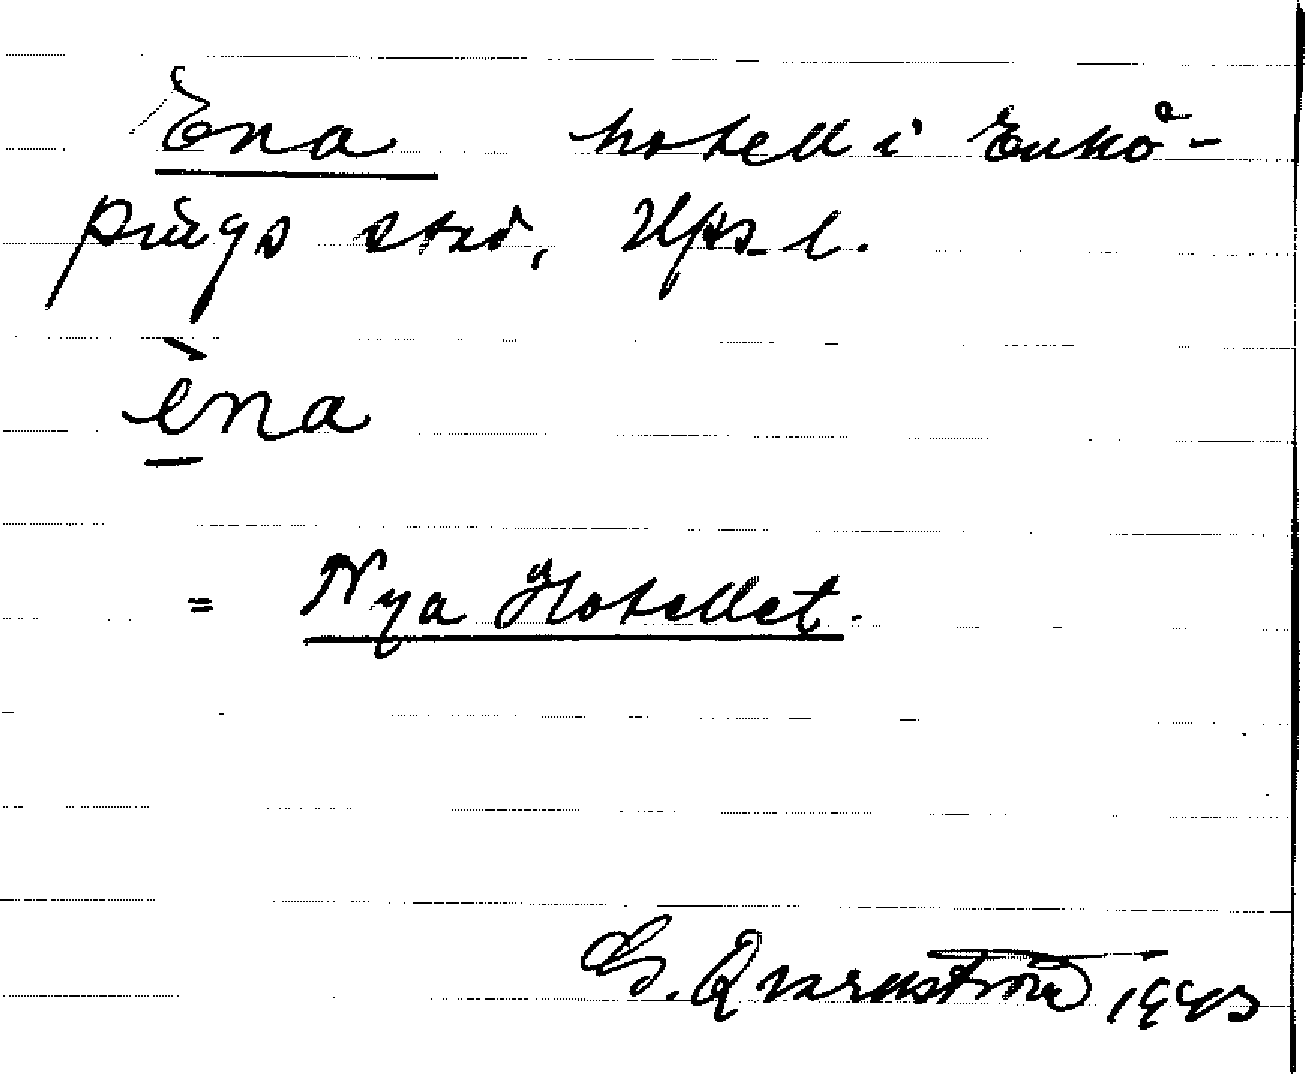 Ena hotell i Enkö-
pings stad, Upsl.
èna
= Nya Hotellet.
G. Qvarnström 1943